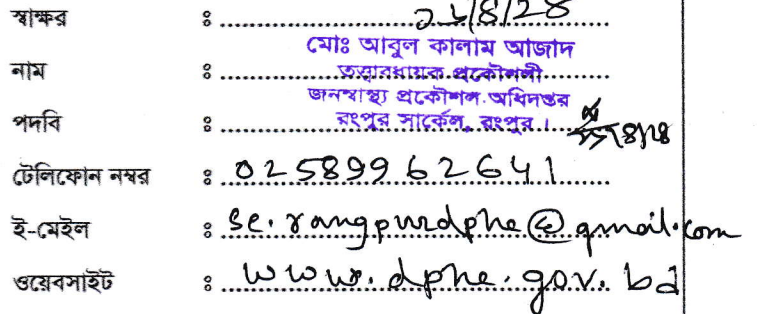 স্বাক্ষর ঃ
মোঃ আবুল কালাম আজাদ
নাম ঃ তত্ত্বাবধায়ক প্রকৌশলী
জনস্বাস্থ্য প্রকৌশল অধিদপ্তর
পদবি ঃ রংপুর সার্কেল, রংপুর ।
টেলিফোন নম্বর ঃ 02589962641
ই-মেইল ঃ se.rangpurdphe@gmail.com
ওয়েবসাইট ঃ www.dphe.gov.bd